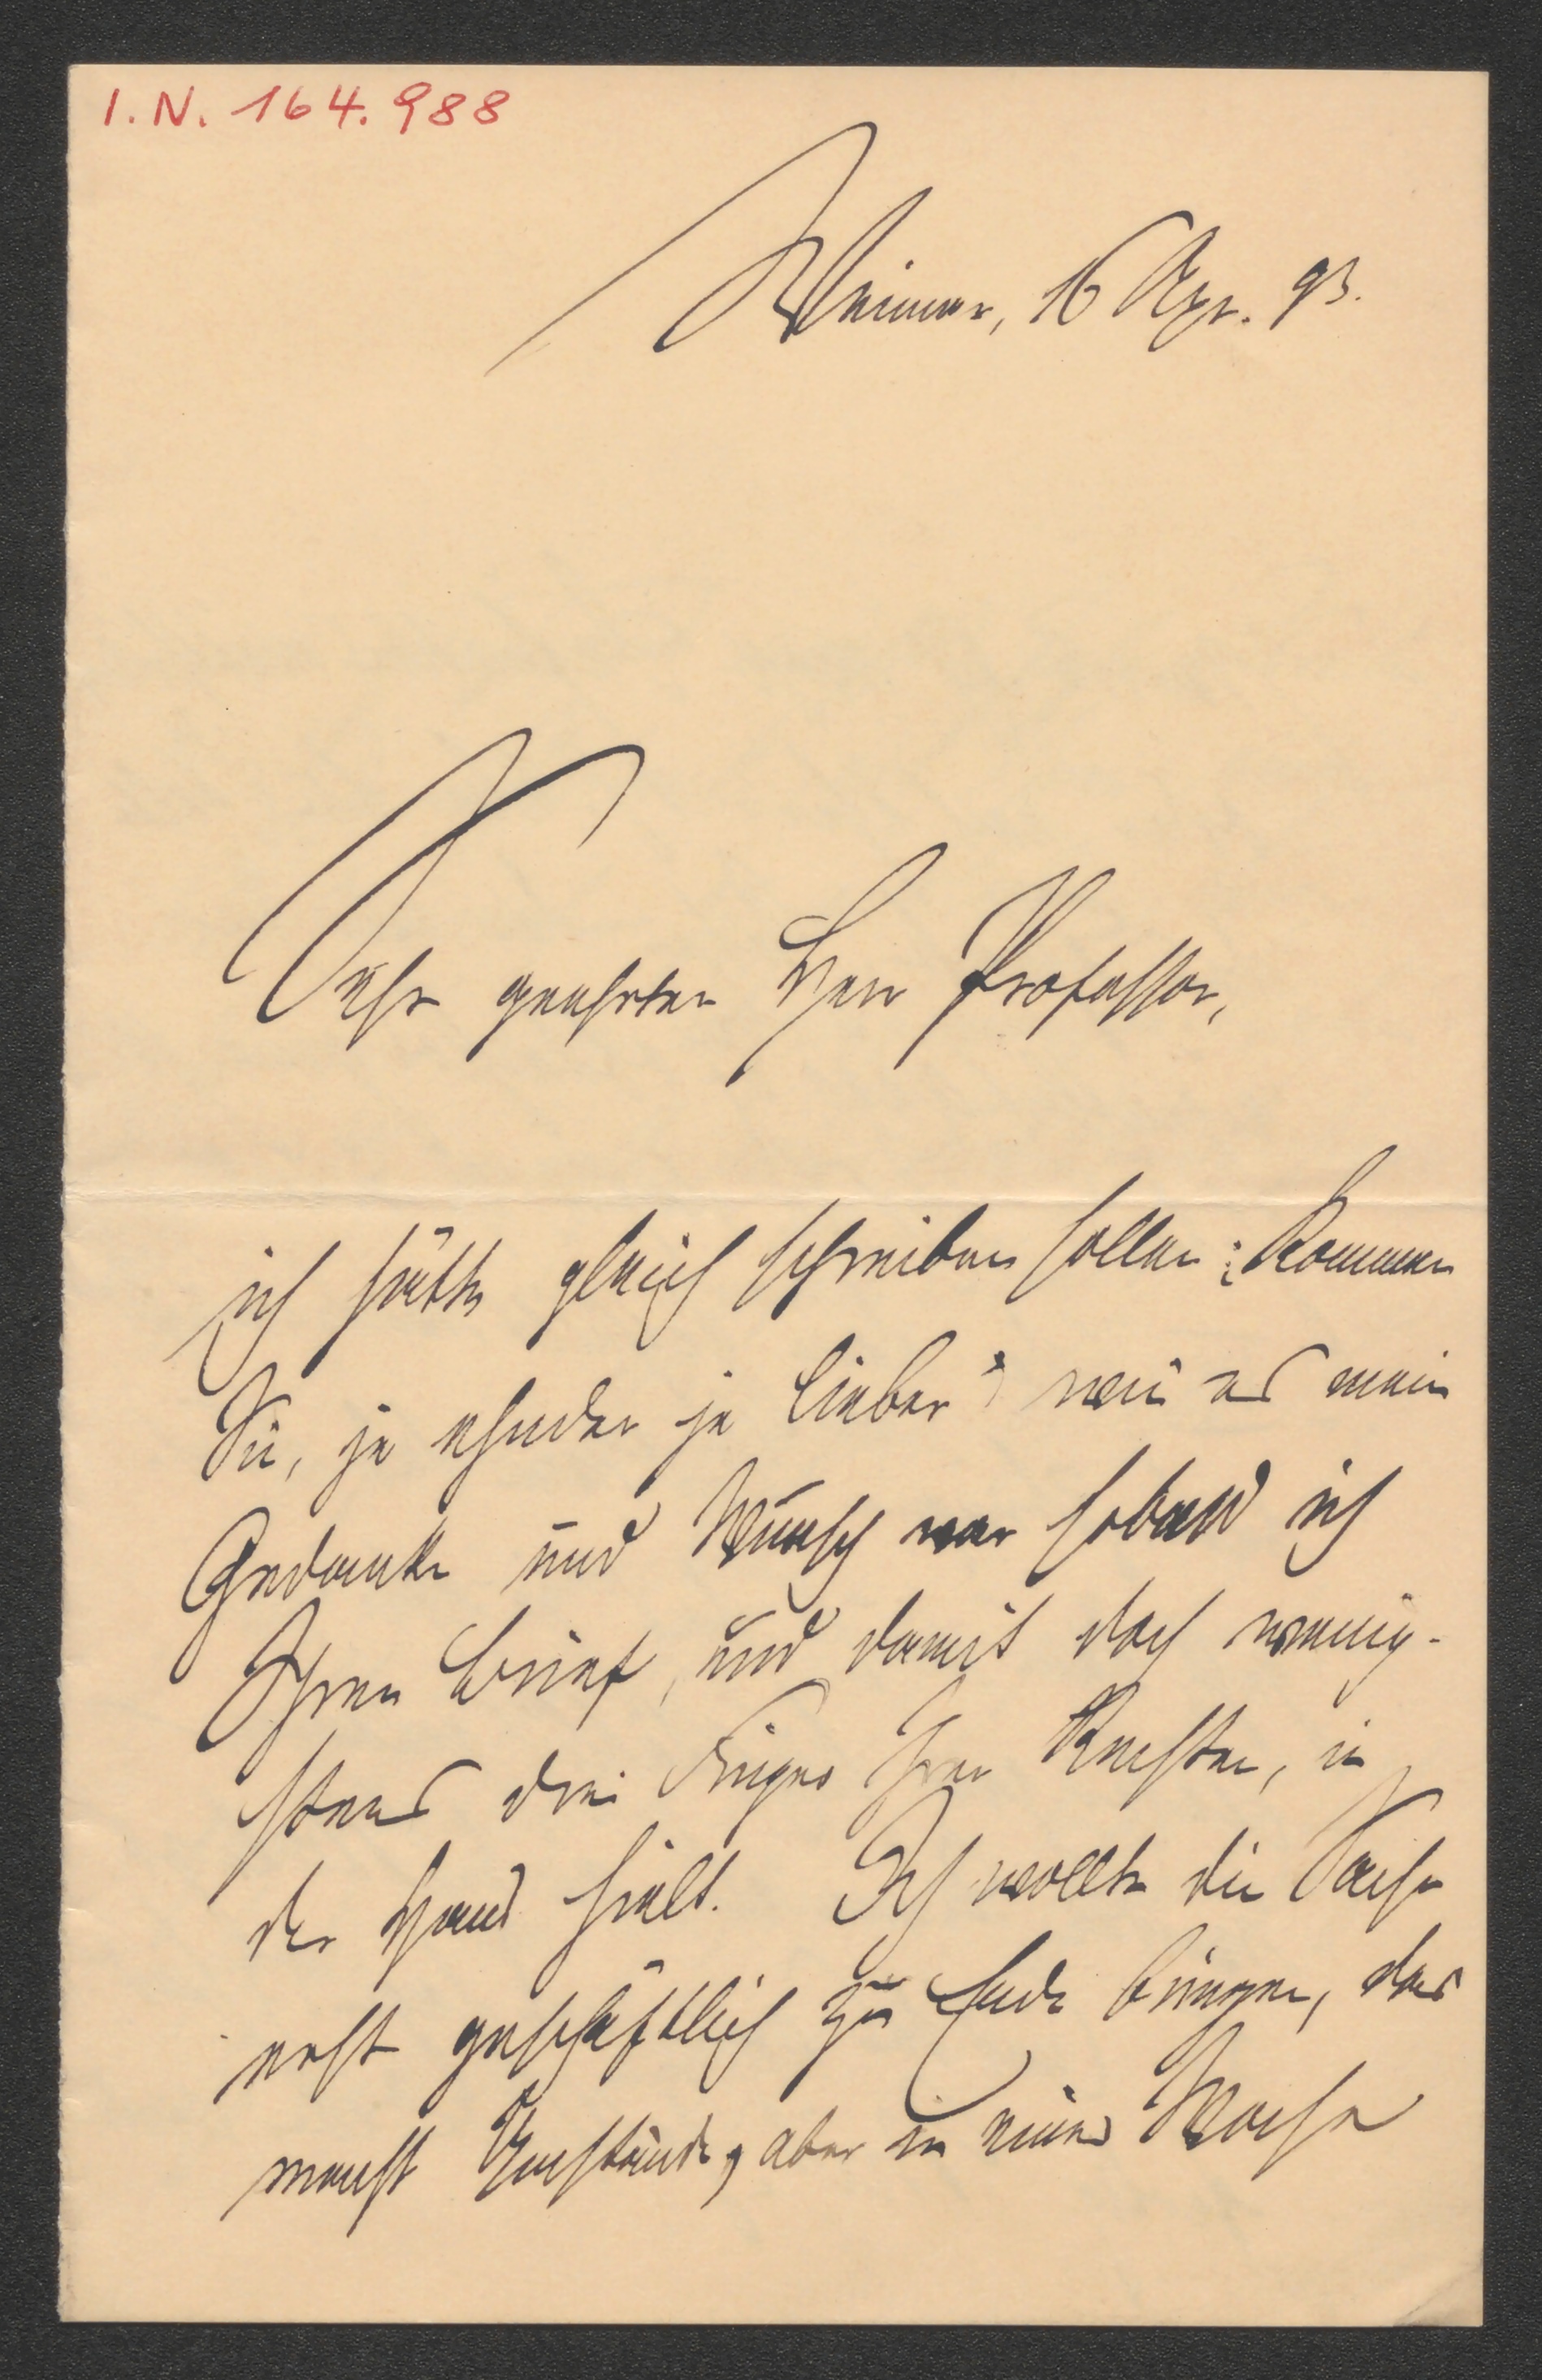 I.N. 164.988
Weimar, 16 Apr. 93.
Sehr geehrter Herr Professor,
ich hätte gleich schreiben sollen: Kommen
Sie, je ehnder je lieber wie es mein
Gedanke und Wunsch war sobald ich
Ihren Brief, und damit doch wenig-
stens drei Finger Ihrer Rechten, in
der Hand hielt. Ich wollte die Sache
erst geschäftlich zu Ende bringen, das
macht Umstände, aber in einer Woche